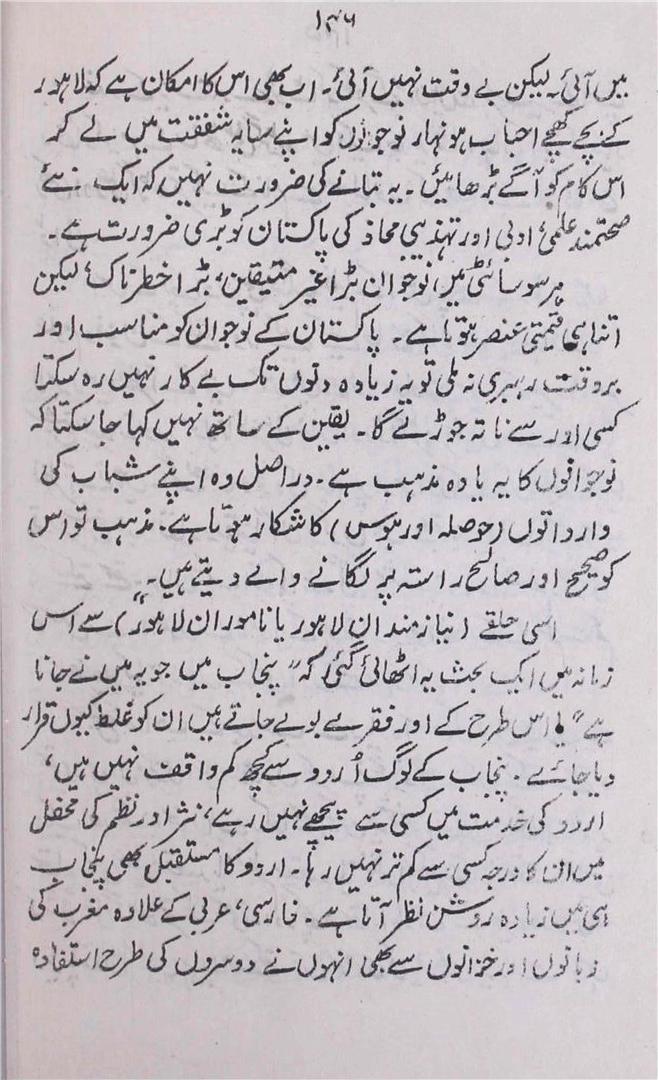 ۱۴۶
میں آئی۔ لیکن بے وقت نہیں آئی۔ اب بھی اس کا امکان ہے کہ لاہور
کے بچے کھچے احباب ہونہار نوجوانوں کو اپنے سایہ شفقت میں لے کر
اس کام کو آگے بڑھائیں۔ یہ بتانے کی ضرورت نہیں کہ ایک نئے
صحتمند علمی، ادبی اور تہذیبی محاذ کی پاکستان کو بڑی ضرورت ہے۔
ہر سوسائٹی میں نوجوان بڑا غیر متیقین، بڑا خطرناک، لیکن
اتنا ہی قیمتی عنصر ہوتا ہے۔ پاکستان کے نوجوان کو مناسب اور
بروقت رہبری نہ ملی تو یہ زیادہ دنوں تک بے کار نہیں رہ سکتا
کسی اور سے ناتہ جوڑے گا۔ یقین کے ساتھ نہیں کہا جا سکتا کہ
نوجوانوں کا یہ یا وہ مذہب ہے۔ دراصل وہ اپنے شباب کی
وارداتوں (حوصلہ اور ہوس) کا شکار ہوتا ہے۔ مذہب تو اس
کو صحیح اور صالح راستہ پر لگانے والے دیتے ہیں۔"
اسی حلقے (نیازمندان لاہور یا ناموران لاہور) سے اس
زمانہ میں ایک بحث یہ اٹھائی گئی کہ "پنجاب میں جو یہ میں نے جانا
ہے" یا اس طرح کے اور فقرے بولے جاتے ہیں ان کو غلط کیوں قرار
دیا جائے۔ پنجاب کے لوگ اُردو سے کچھ کم واقف نہیں ہیں،
اردو کی خدمت میں کسی سے پیچھے نہیں رہے، نثر اور نظم کی محفل
میں ان کا درجہ کسی سے کم تر نہیں رہا۔ اردو کا مستقبل بھی پنجاب
ہی میں زیادہ روشن نظر آتا ہے۔ فارسی، عربی کے علاوہ مغرب کی
زبانوں اور خزانوں سے بھی انہوں نے دوسروں کی طرح استفادہ